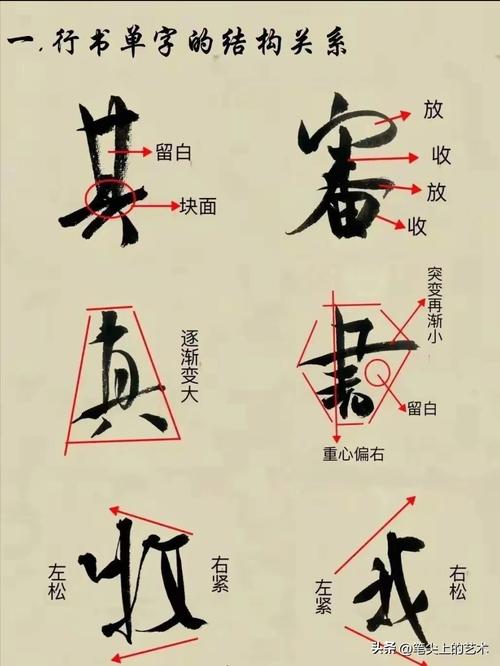 一.行书单字的结构关系
其
留白
块面
審
放
收
放
收
真
逐渐变大
書
突变再渐小
留白
重心偏右
左松
收
右紧
左紧
我
右松
头条@笔尖上的艺术